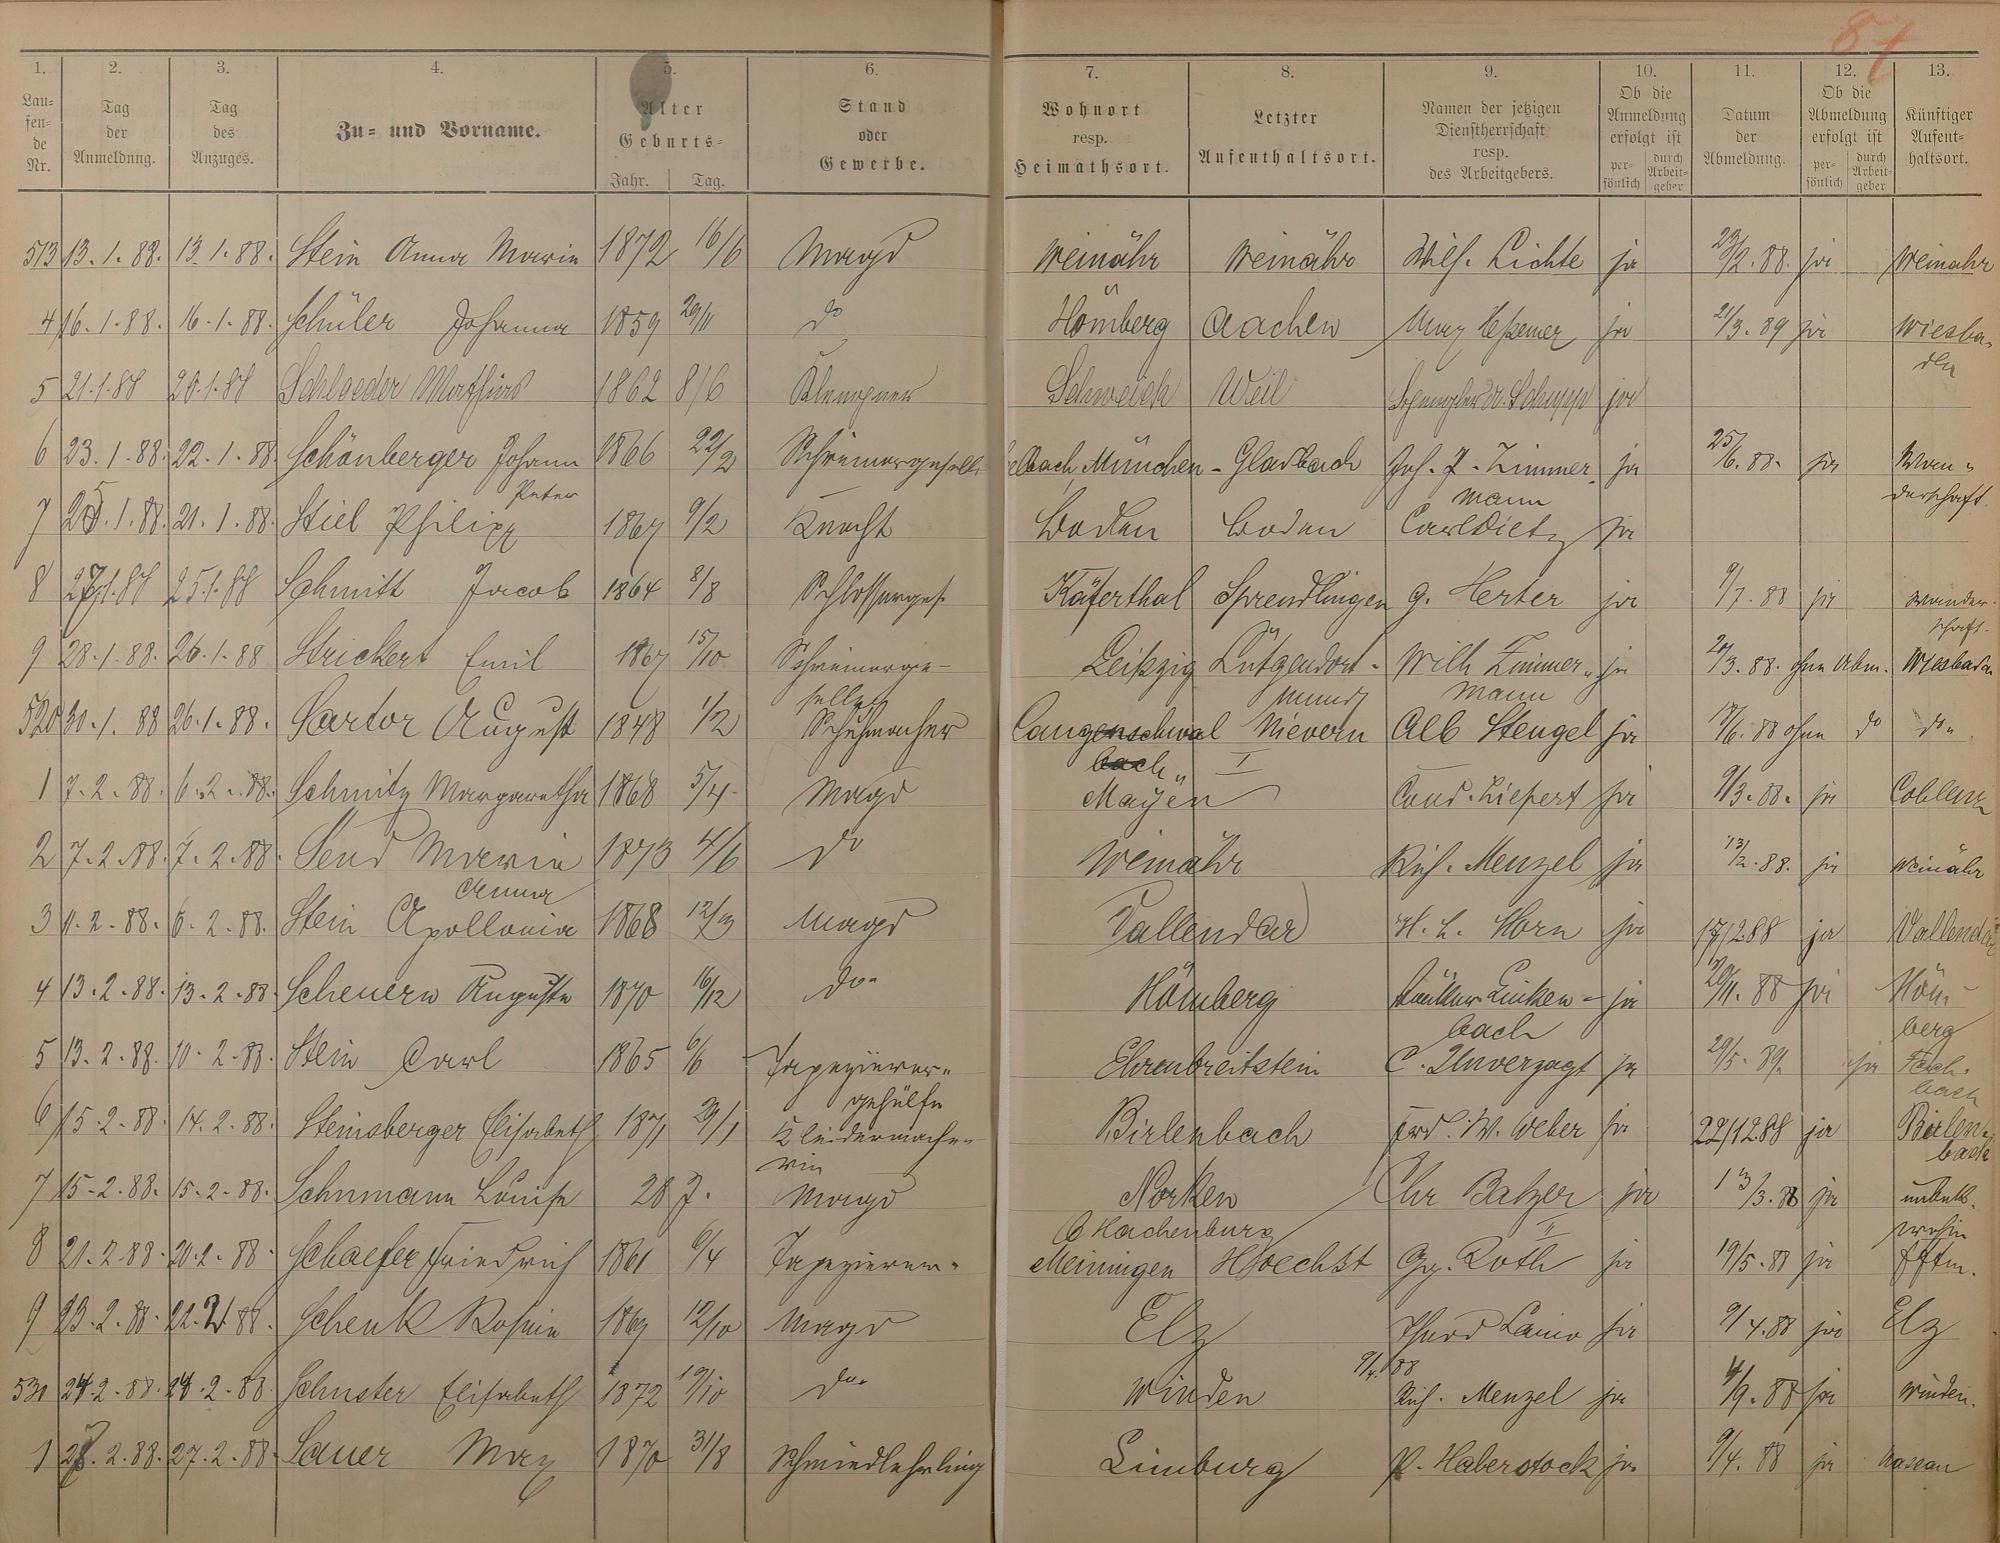 87
1. 2. 3. 4. 5. 6. 7. 8. 9. 10. 11. 12. 13.
Lau-fen-de Nr. Tag der Anmeldung. Tag des Anzuges. Zu- und Vorname. Alter Geburts- Jahr. Tag. Stand oder Gewerbe. Wohnort resp. Heimathsort. Letzter Aufenthaltsort. Namen der jetzigen Dienstherrschaft resp. des Arbeitgebers. Ob die Anmeldung erfolgt ist per-sönlich durch Arbeit-geber Datum der Abmeldung. Ob die Abmeldung erfolgt ist per-sönlich durch Arbeit-geber Künftiger Aufent-haltsort.
513 13.1.88. 13.1.88. Stein Anna Maria 1872 16/6 Magd Weinähr Weinähr Wilh. Lichte ja 29/2.88. ja Weinähr
4 16.1.88. 16.1.88. Schüler Johanna 1859 29/11 do Hömberg Aachen Max ja 21/3.89 ja Wiesba-
den
5 21.1.88 20.1.88 Schloeder Mathias 1862 8/6 Klempner Schweich Weil Schupp ja
6 23.1.88. 22.1.88. Schönberger Johann 1866 22/2 Schreinergeselle München-Gladbach Joh. P. Zimmer- ja 25/6.88. ja Wan-
mann derschaft.
Peter
7 25.1.88. 21.1.88. Stiel Philipp 1867 9/2 Knecht Boden Boden Carl Dietz ja
8 27.1.88 25.1.88 Schmitt Jacob 1864 8/8 Schlosserges. Käferthal Sprendlingen G. Herter ja 9/7.88 ja Wander-
schaft.
9 28.1.88. 26.1.88 Strickert Emil 1867 15/10 Schreinerge- Leipzig Lütgendort- Wilh Zimmer- ja 20/3.88. ohne Abm. Wiesbaden
sellen mund mann
520 30.1.88 26.1.88. Sartor August 1848 1/2 Schuhmacher Langenschwal Nievern Alb Stengel ja 18/6.88 ohne do do
bach
1 7.2.88. 6.2.88. Schmitz Margaretha 1868 5/4 Magd Mayen Cond. Liefert ja 9/3.88. ja Coblenz
2 7.2.88. 7.2.88. Send Maria 1873 4/6 do Weinähr Rich. Menzel ja 13/2.88. ja Weinähr
Anna
3 11.2.88. 6.2.88. Stein Apollonia 1868 12/3 Magd Vallendar H. L. Horn ja 17/2 88 ja Vallendar
4 13.2.88. 13.2.88. Scheuern Auguste 1870 16/12 do. Hömberg Linken- ja 20/11.88 ja Höm-
bach berg
5 13.2.88. 10.2.88. Stein Carl 1865 6/6 Tapezierer- Ehrenbreitstein C. Unverzagt ja 29/5.89. ja Fach-
gehülfe bach
6 15.2.88. 14.2.88. Steinsberger Elisabeth 1871 29/1 Kleidermache- Birlenbach Ferd. W. Weber ja 22/12 88 ja Birlen-
rin bach
7 15.2.88. 15.2.88. Schumann Louise 28 J. Magd Norken Chr Balzer ja 13/3.88 ja unbek.
b Hachenburg II wohin
8 21.2.88 20.2.88. Schaefer Friedrich 1861 6/4 Tapezierer. Meiningen Hoechst Gg. Roth ja 19/5.88 ja Ffm.
9 23.2.88. 22.2.88. Schenk Rosina 1867 12/10 Magd Elz ja 9/4.88 ja Elz
9/4.88
530 24.2.88. 24.2.88 Schuster Elisabeth 1872 19/10 do. Winden Rich. Menzel ja 4/9.88 ja Winden.
1 28.2.88. 27.2.88. Sauer Max 1870 31/8 Schmiedlehrling Limburg P. Haberstock ja 9/4.88 ja Nassau